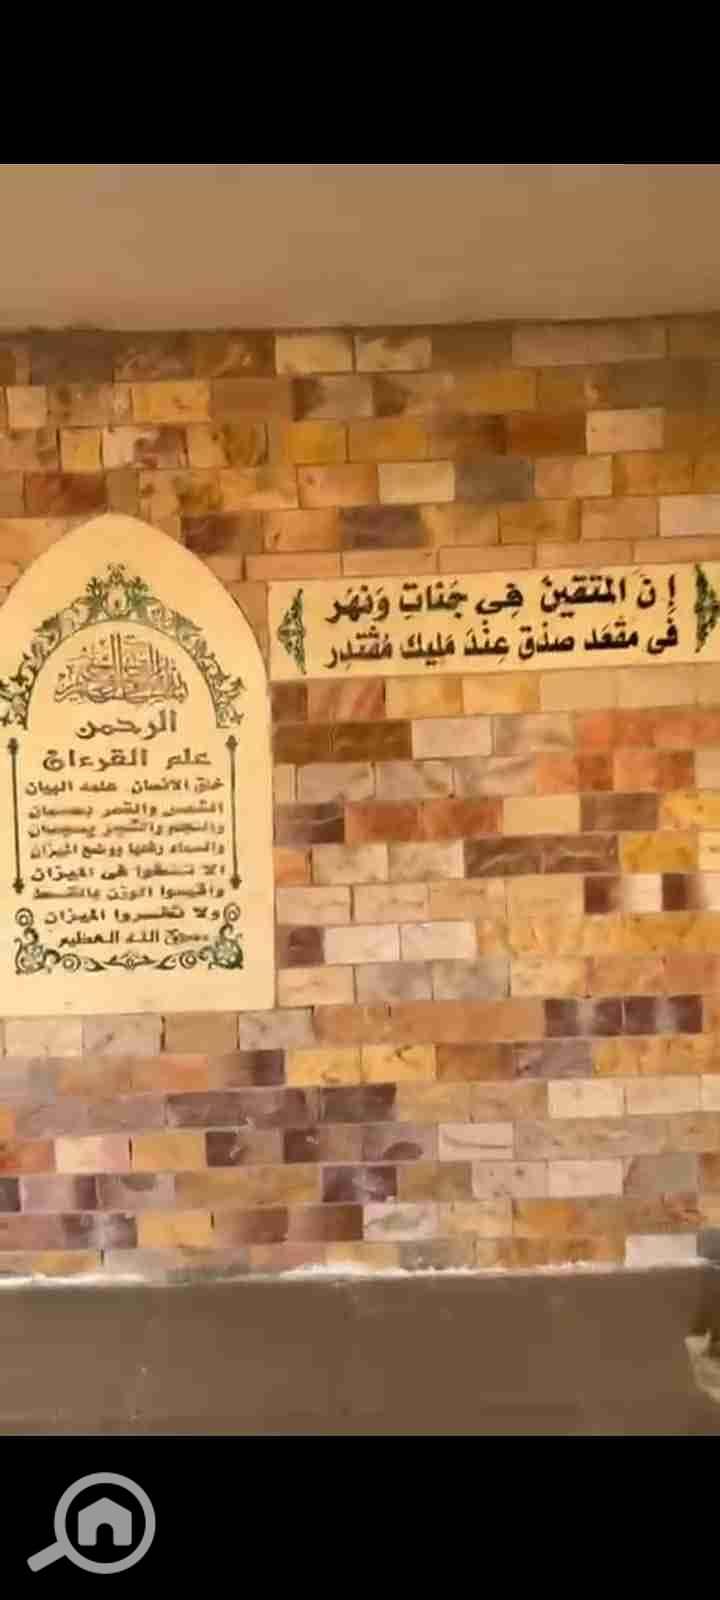 إن المتقين في جَناتِ وَنهَر
فَى مَقعَد صدْق عِنْدَ مَليك مُقْتدِر
الرحمن
علم القرءان
خلق الانسان علمه البيان
الشمس والقمر بحسبان
والنجم والشجر يسجدان
والسماء رفعها ووضع الميزان
الا تطغوا فى الميزان
واقيموا الوزن بالقسط
ولا تخسروا الميزان
صدق الله العظيم